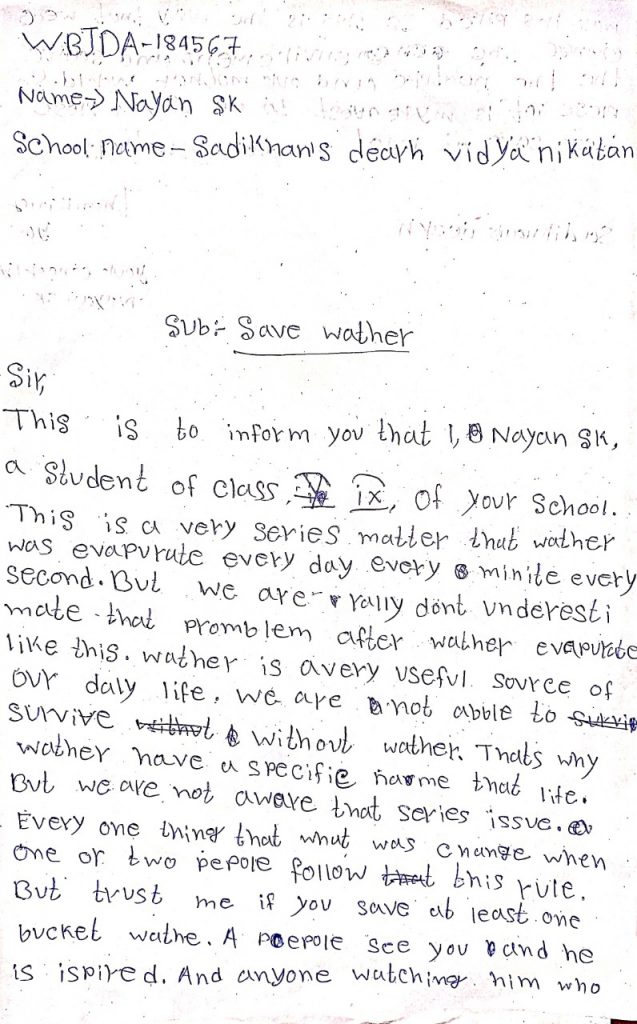 WBJDA-184567
Name⇒ Nayan SK
School name - Sadikhan's dearh vidya nikatan
Sub:- Save wather
Sir,
This is to inform you that I, Nayan SK,
a Student of Class, ix, of your School.
This is a very series matter that wather
was evapurate every day every minite every
second. But we are rally dont underesti
mate that promblem after wather evapurate
like this. wather is avery useful source of
our daly life. we are not abble to survie
survive withut without wather. Thats why
wather have a specific name that life.
But we are not aware that series issue.
Every one thing that what was change when
one or two pepole follow that this rule.
But trust me if you save at least one
bucket wathe. A poepole see you and he
is ispired. And anyone watching him who